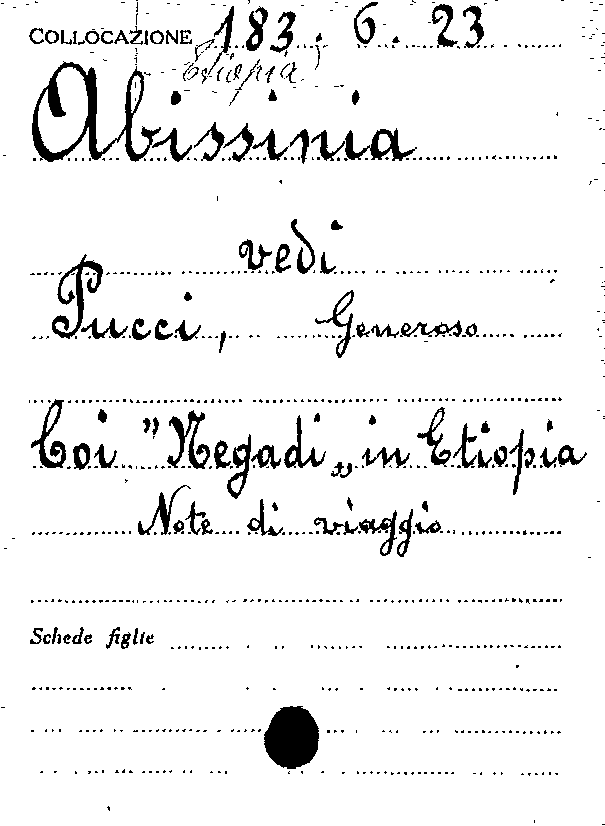 COLLOCAZIONE 183. 6. 23
(Etiopia)
Abissinia
vedi
Pucci, Generoso
Coi "Negadi" in Etiopia
Note di viaggio
Schede figlie